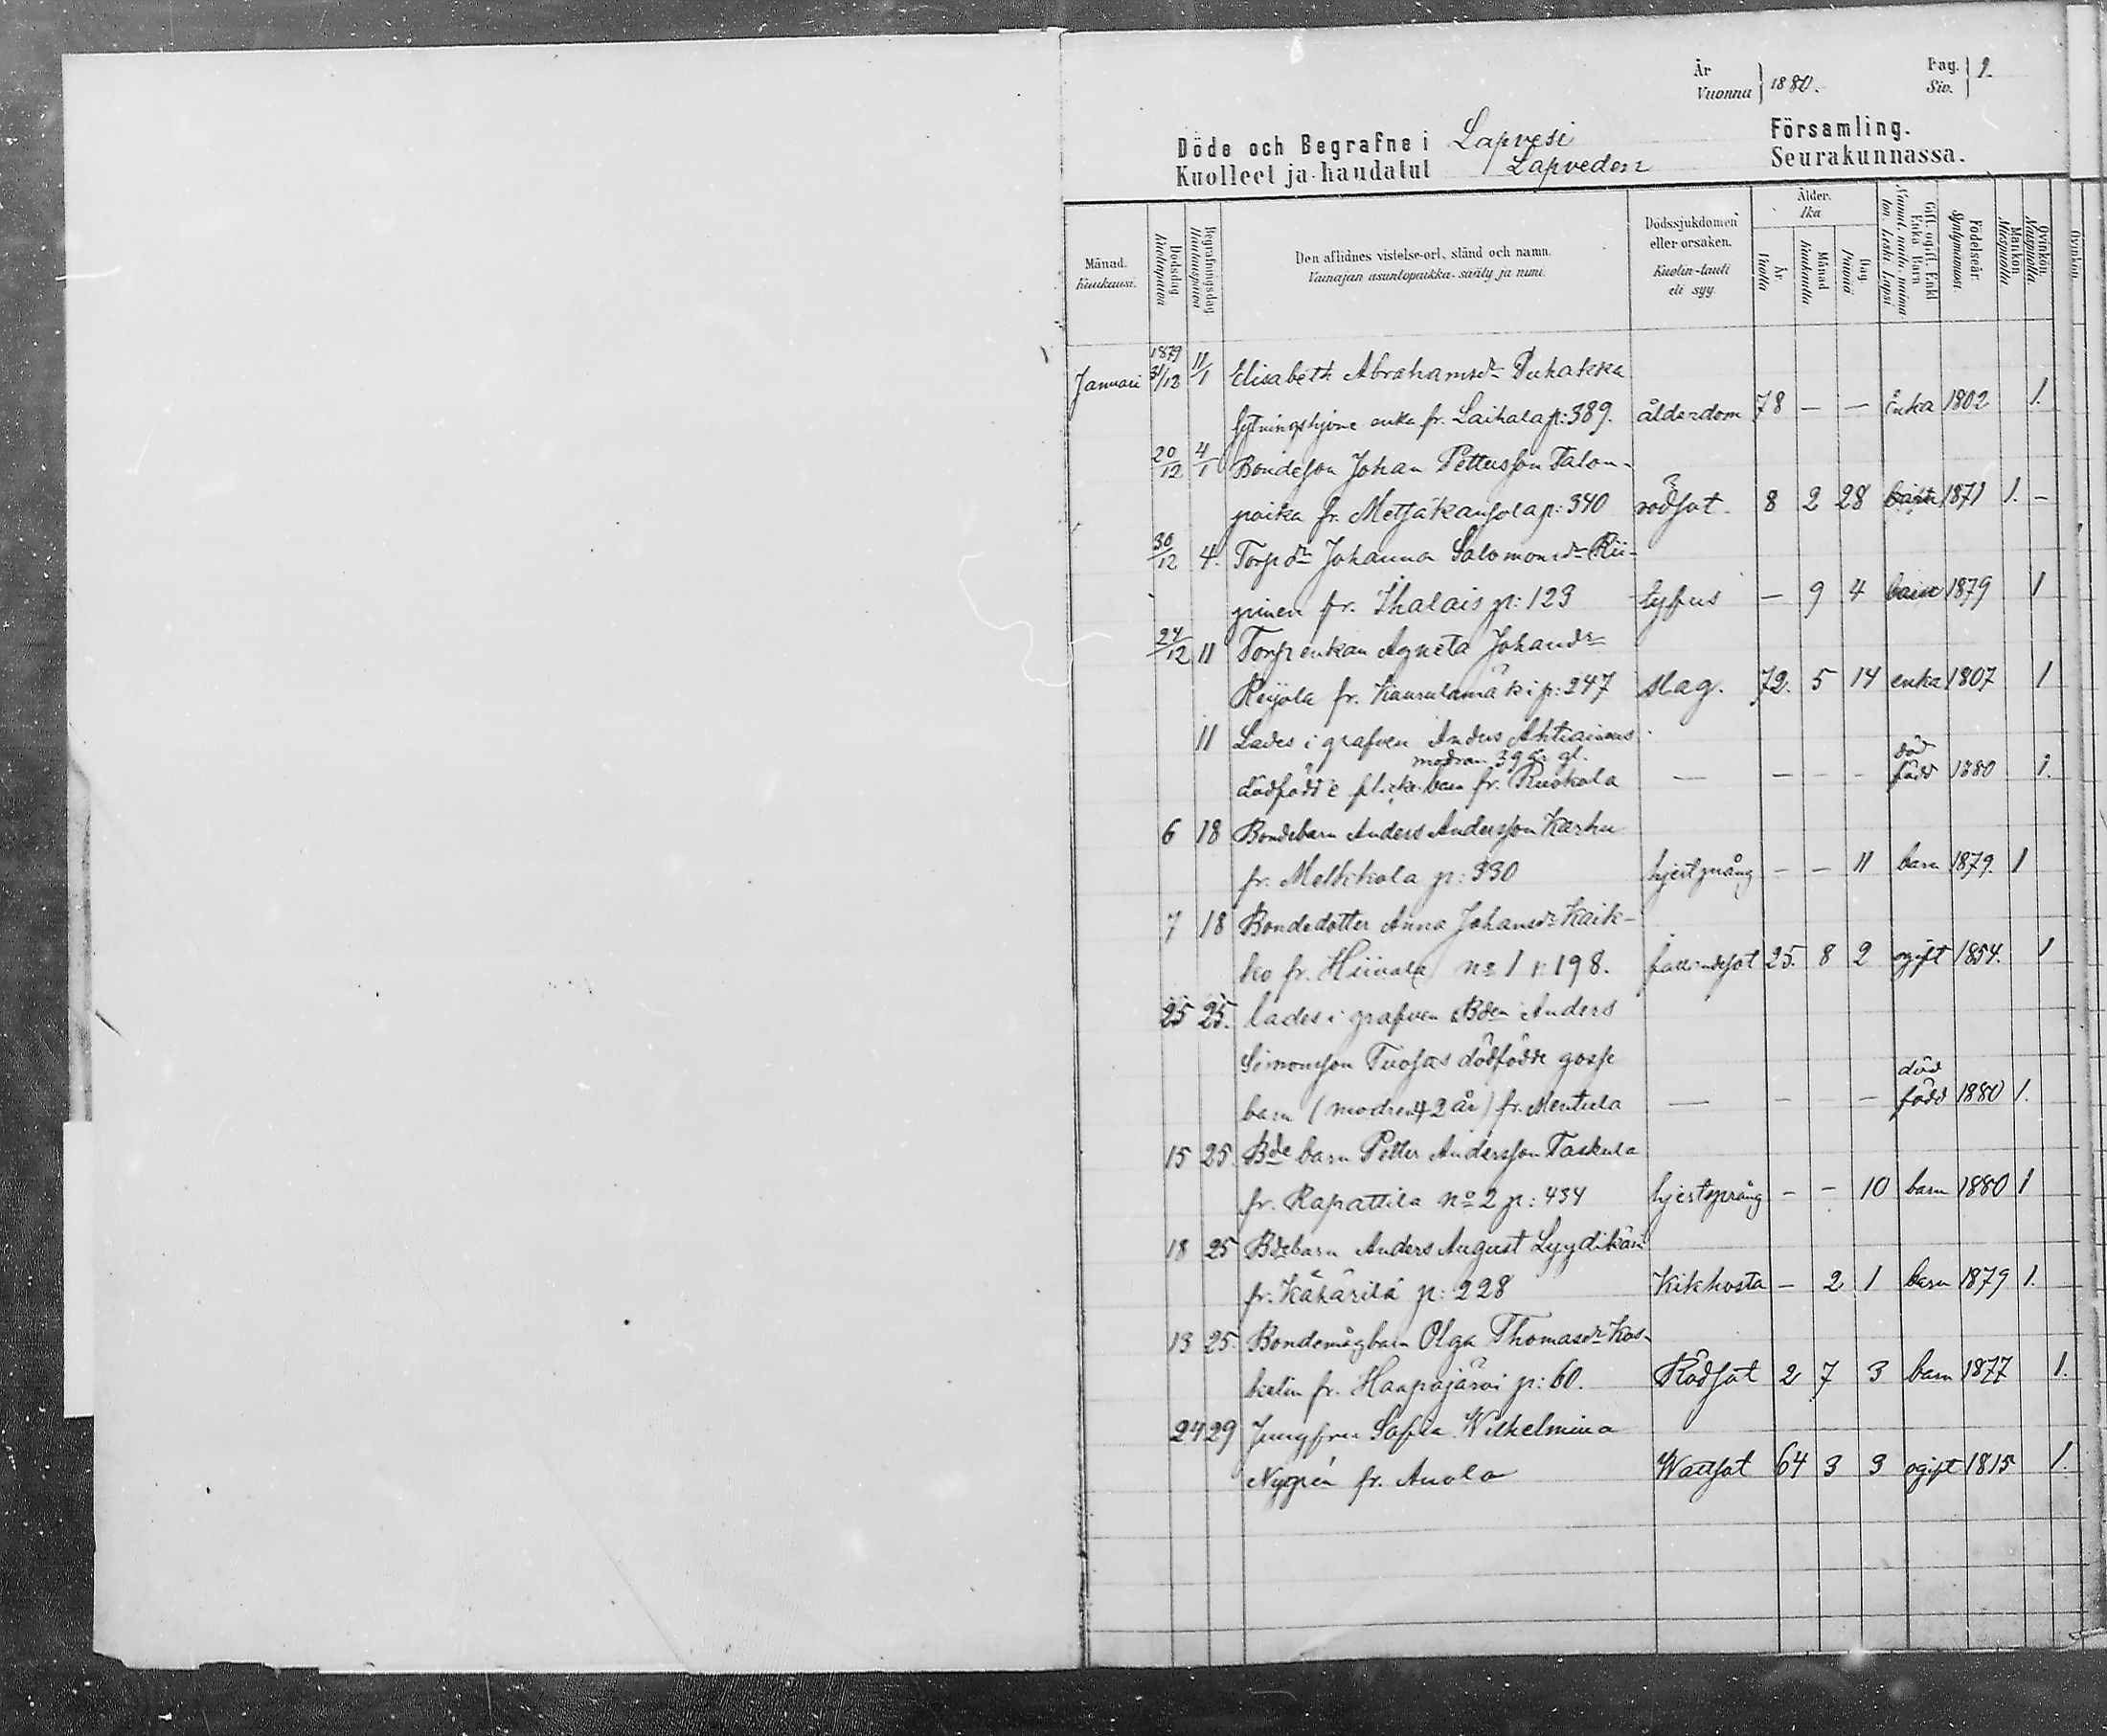 År
Vuonna } 1880.
Pag.
Siv. } 1.
Döde och Begrafne i Lapvesi Församling.
Kuolleet ja haudatut Lapveden Seurakunnassa.
Månad. Kuukausi.
Dödsdag. Kuolinpäivä
Begrafningsdag. Hautauspäivä
Den aflidnes vistelse-ort, stånd och namn.
Vainajan asuntopaikka, sääty ja nimi.
Dödssjukdomen eller orsaken.
Kuolin-tauti eli syy.
Ålder. Ikä
År. Vuotta
Månad. Kuukautta
Dag. Päivää
Gift, ogift, Enkl. Enka Barn
Födelseår. Syntymävuosi.
Mankön. Miespuolta
Qvinkön. Naispuolta
Januari 1879 31/12 11/1 Elisabeth Abrahamsdr Puhakka
sytningshjone enka fr. Laihala p: 389. ålderdom 78 — — Enka 1802 1.
20/12 4/1 Bondeson Johan Pettersson Talon-
poika fr. Metsäkansola p: 340 rödsot 8 2 28 barn 1871 1. -
30/12 4. Torpdr Johanna Salomonsdr Rii-
pinen fr. Ihalais p: 123 tyfus — 9 4 barn 1879 1
24/12 11 Torpenkan Agneta Johansdr
Reijola fr. Kaurulamäki p: 247 slag. 72. 5 14 enka 1807 1
11 Lades i grafven Anders Ahtiainens
modran 39 år gl.
dödfödde flickebarn fr. Ruokola — — - - död född 1880 1.
6 18 Bondebarn Anders Andersson Karhu
fr. Meltikola p: 330 hjertsprång - - 11 barn 1879. 1
7 18 Bondedotter Anna Johansdr Kaik-
ko fr. Hiivala no 1 p: 198. fallandesot 25. 8 2 ogift 1854. 1
25 25. lades i grafven Bden Anders
Simonsson Tuosas dödfödde gosse
barn (modren 42 år) fr. Mentula — - - - död född 1880 1.
15 25. Bde barn Petter Andersson Taskula
fr. Rapattila no 2 p: 434 hjertsprång - - 10 barn 1880 1
18 25 Bdebarn Anders August Lyydikäin
fr. Kähärilä p: 228 Kikhosta - 2 1 barn 1879 1.
13 25. Bondemågbarn Olga Thomasdr Kos-
kelin fr. Haapajärvi p: 60. Rödsot 2 7 3 barn 1877 1.
24 29 Jungfru Sofia Wilhelmina
Nygrén fr. Anola Wattsot 64 3 3 ogift 1815 1.